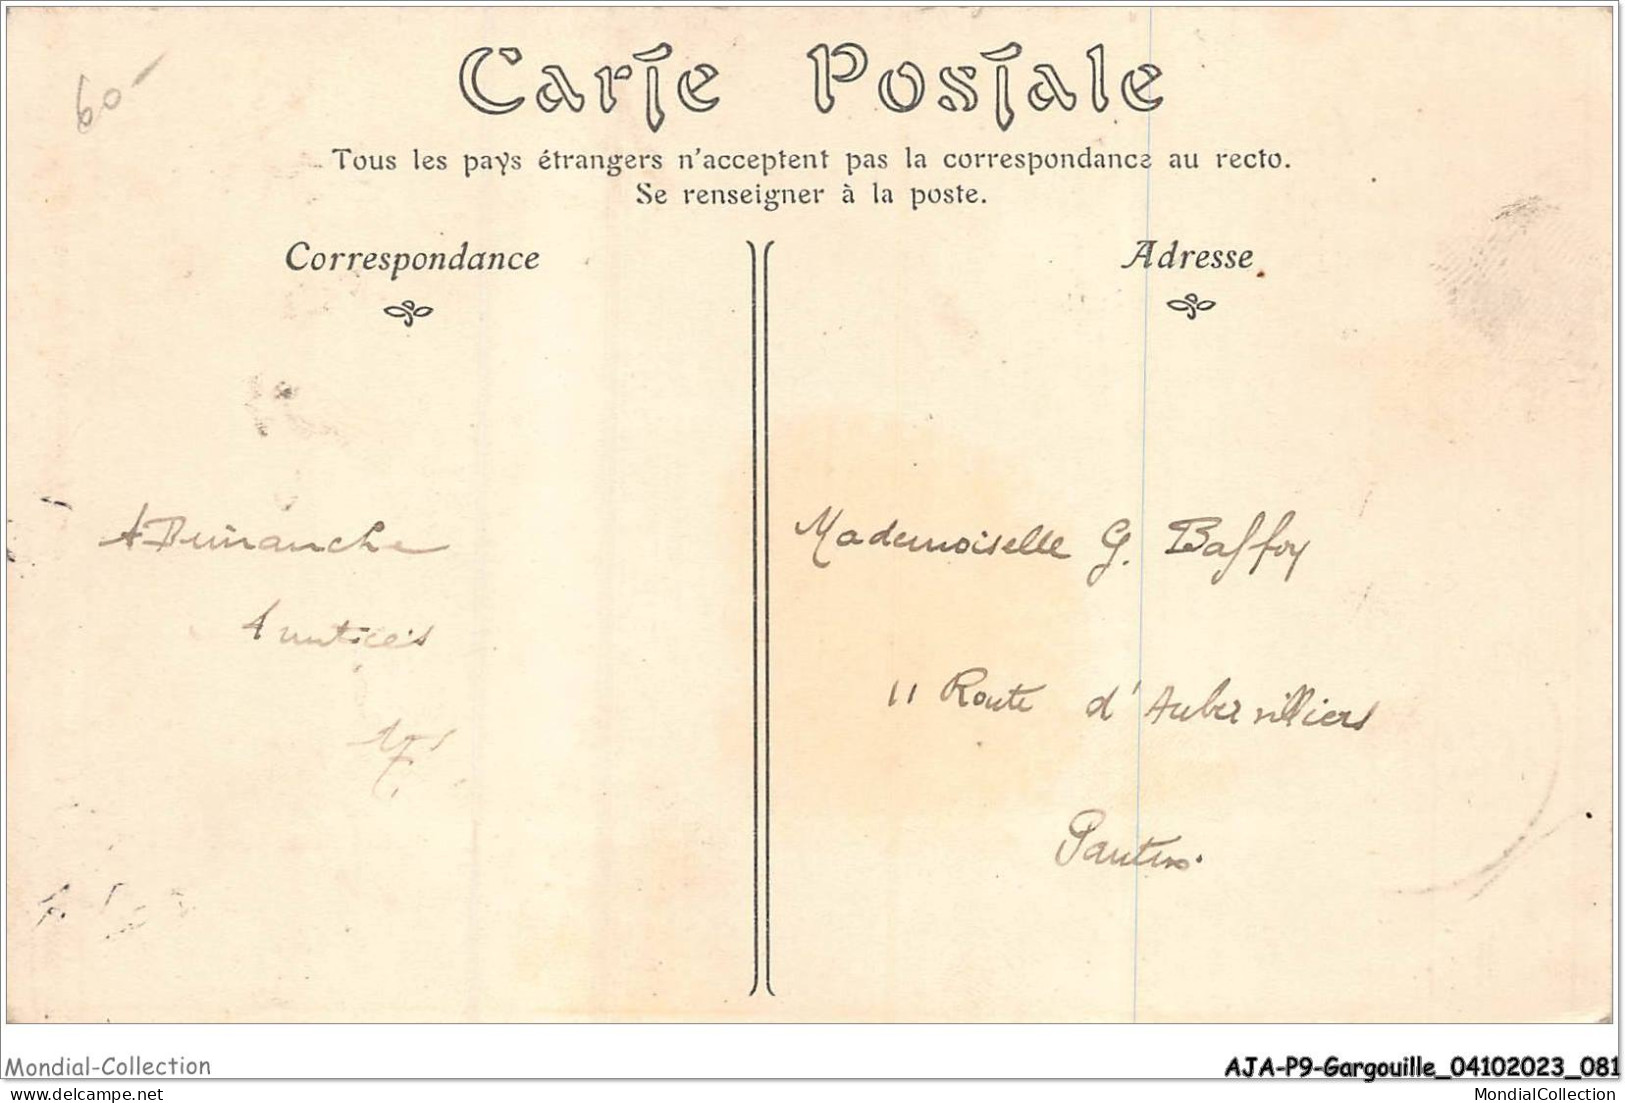 60-
Carte Postale
Tous les pays étrangers n'acceptent pas la correspondance au recto.
Se renseigner à la poste.
Correspondance
Adresse
A Dimanche
Amitiés
Mademoiselle G. Baffoy
11 Route d'Aubervilliers
Pantin.
Mondial-Collection
AJA-P9-Gargouille_04102023_081
delcampe.net
MondialCollection